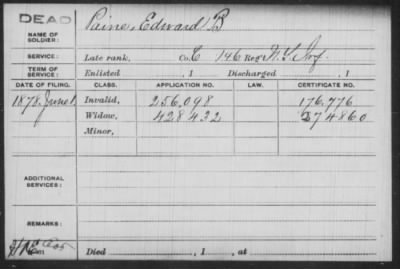 DEAD
NAME OF SOLDIER: Paine, Edward B
SERVICE: Late rank, Co. C 146 Reg't N.Y. Inf.
TERM OF SERVICE: Enlisted , 1 Discharged , 1
DATE OF FILING. CLASS. APPLICATION NO. LAW. CERTIFICATE NO.
1878, June 1. Invalid, 256,098 176,776
Widow, 428432 274860
Minor,
ADDITIONAL SERVICES:
REMARKS:
Died , 1 , at